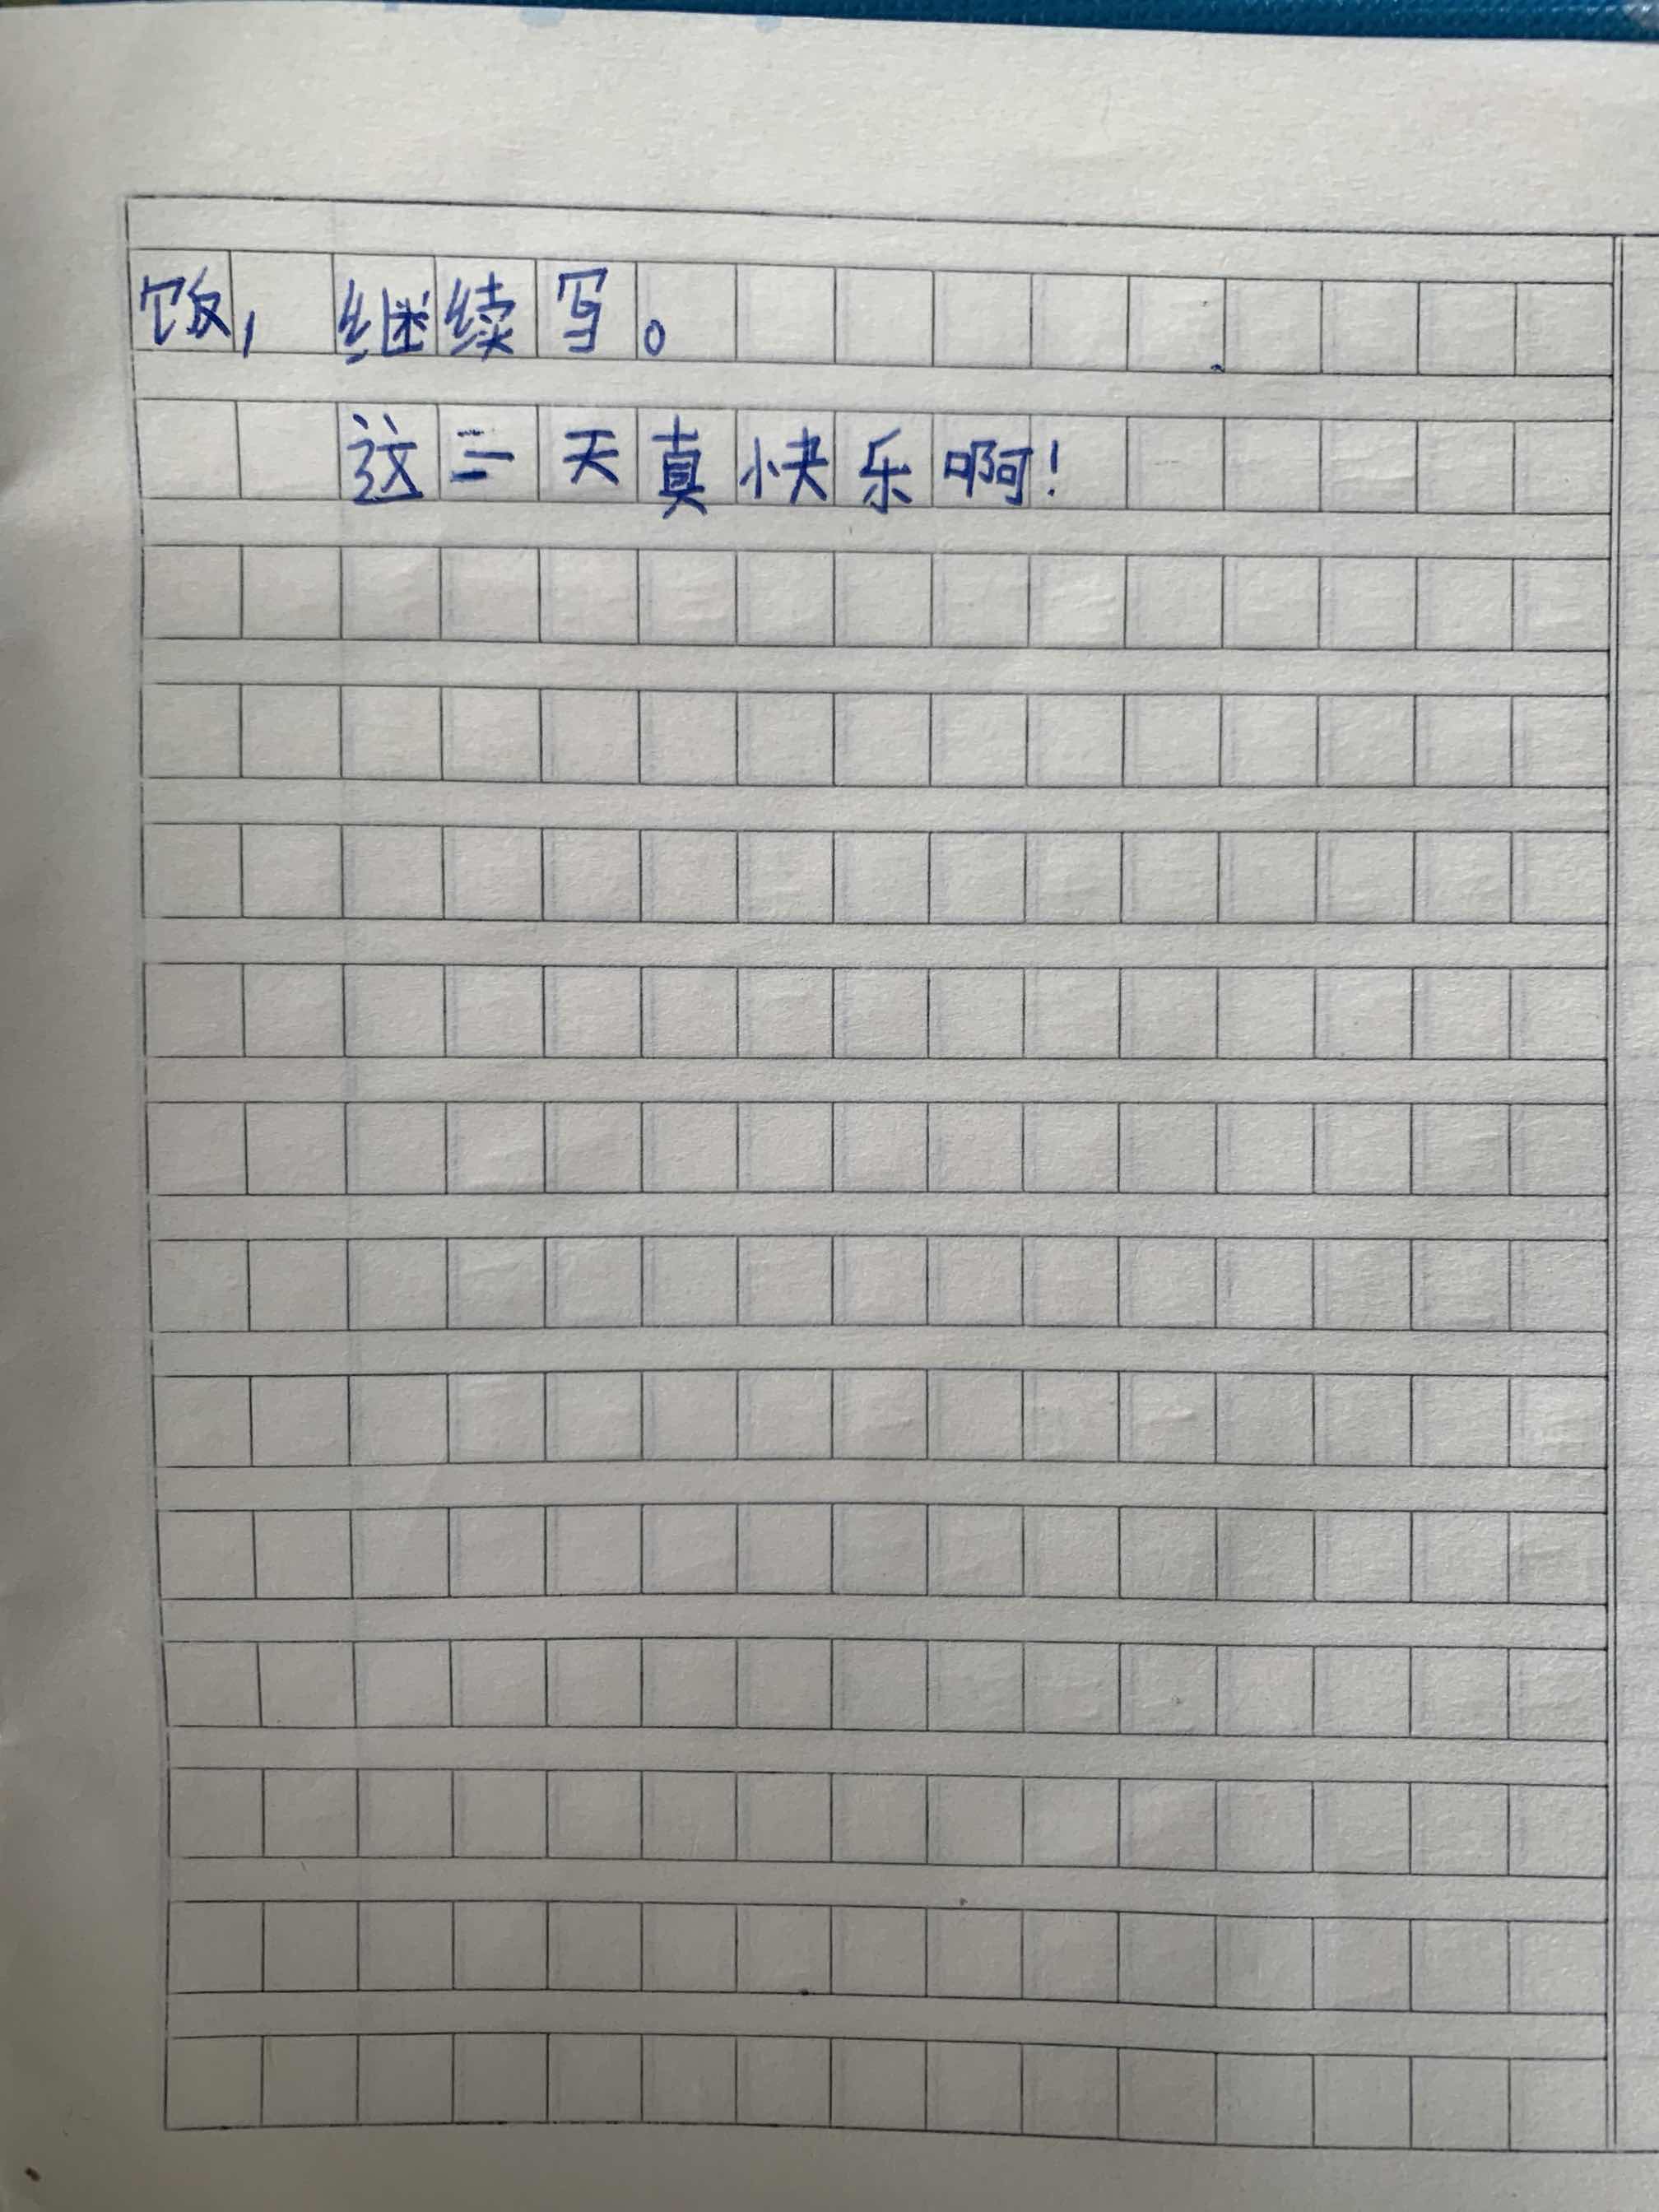 饭，继续写。
这三天真快乐啊！